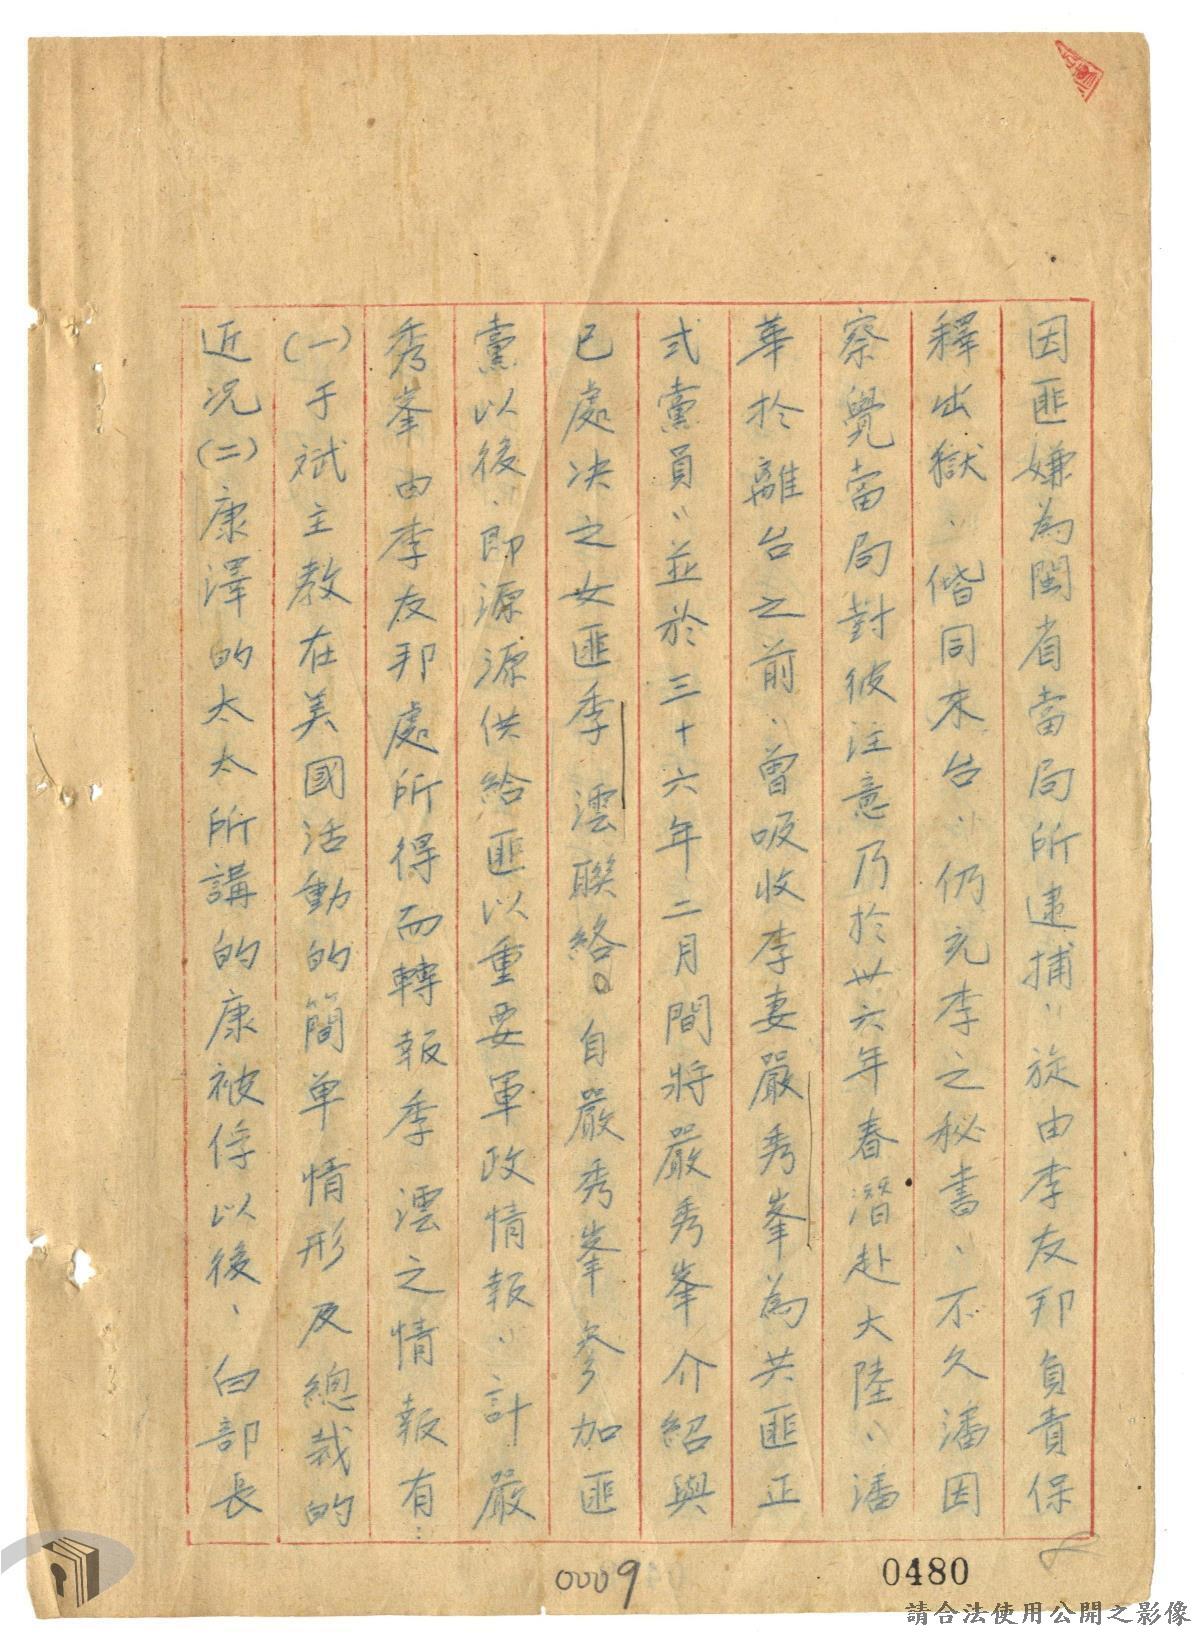 因匪嫌為閩省當局所逮捕，旋由李友邦負責保
釋出獄，偕同來台，仍充李之秘書，不久潘因
察覺當局對彼注意乃於卅六年春潛赴大陸，潘
華於離台之前，曾吸收李妻嚴秀峯為共匪正
式黨員，並於三十六年二月間將嚴秀峯介紹與
已處決之女匪季澐聯絡。自嚴秀峯參加匪
黨以後，即源源供給匪以重要軍政情報，計嚴
秀峯由李友邦處所得而轉報季澐之情報有：
(一)于斌主教在美國活動的簡單情形及總裁的
近況(二)康澤的太太所講的康被俘以後，白部長
0009
0480
請合法使用公開之影像